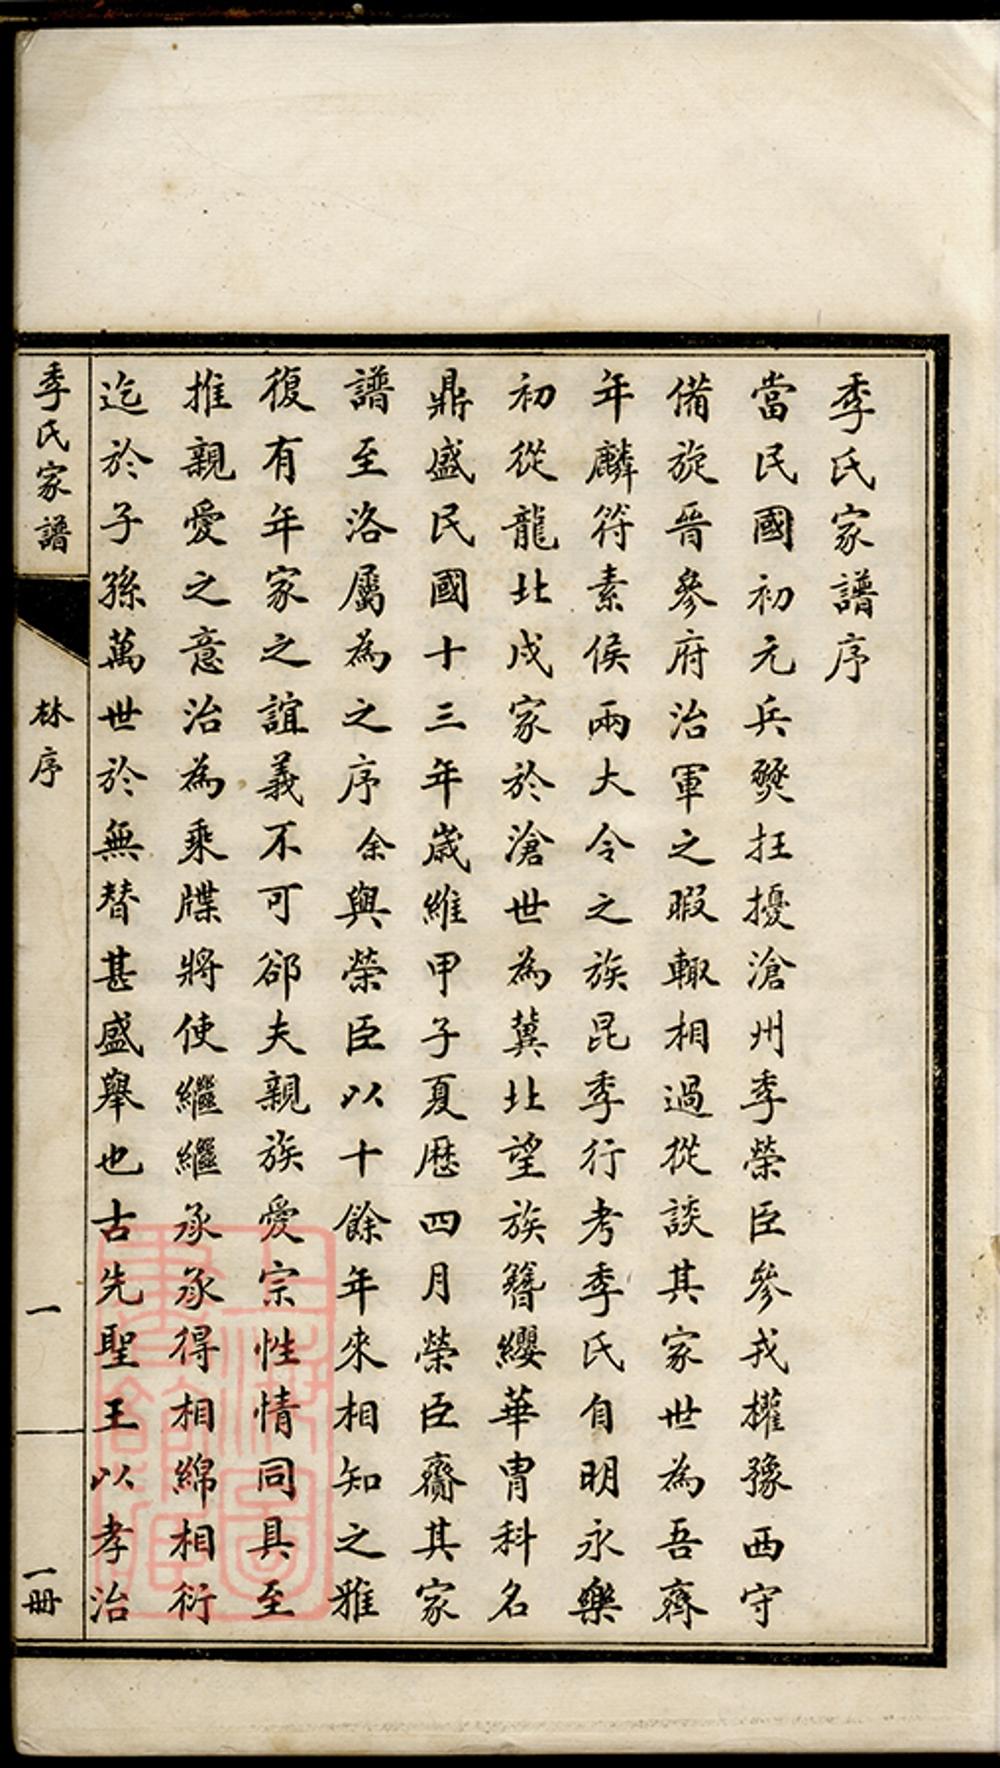 季氏家譜序
當民國初元兵燹抂擾滄州季榮臣參戎權豫西守
備旋晉參府治軍之暇輒相過從談其家世為吾齊
年麟符素侯兩大令之族昆季行考季氏自明永樂
初從龍北戍家於滄世為冀北望族簪纓華冑科名
鼎盛民國十三年歲維甲子夏歷四月榮臣齎其家
譜至洛屬為之序余與榮臣以十餘年來相知之雅
復有年家之誼義不可郤夫親族愛宗性情同具至
推親愛之意治為乘牒將使繼繼承承得相綿相衍
迄於子孫萬世於無替甚盛舉也古先聖王以孝治
季氏家譜
林序
一
一冊
上海圖書館藏